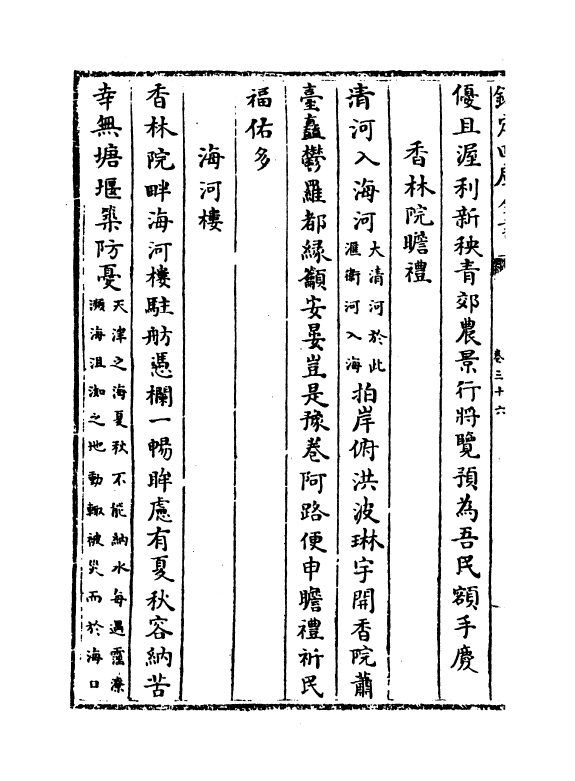 欽定四庫全書
卷三十六
優且渥利新秧青郊農景行將覽預為吾民額手慶
香林院瞻禮
清河入海河大清河於此滙衛河入海拍岸俯洪波琳宇開香院蕭
臺矗鬱羅都緣籲安晏豈是豫巻阿路便申瞻禮祈民
福佑多
海河樓
香林院畔海河樓駐舫憑欄一暢眸慮有夏秋容納苦
幸無塘堰築防憂天津之海夏秋不能納水每遇霪潦瀕海沮洳之地動輙被災而於海口